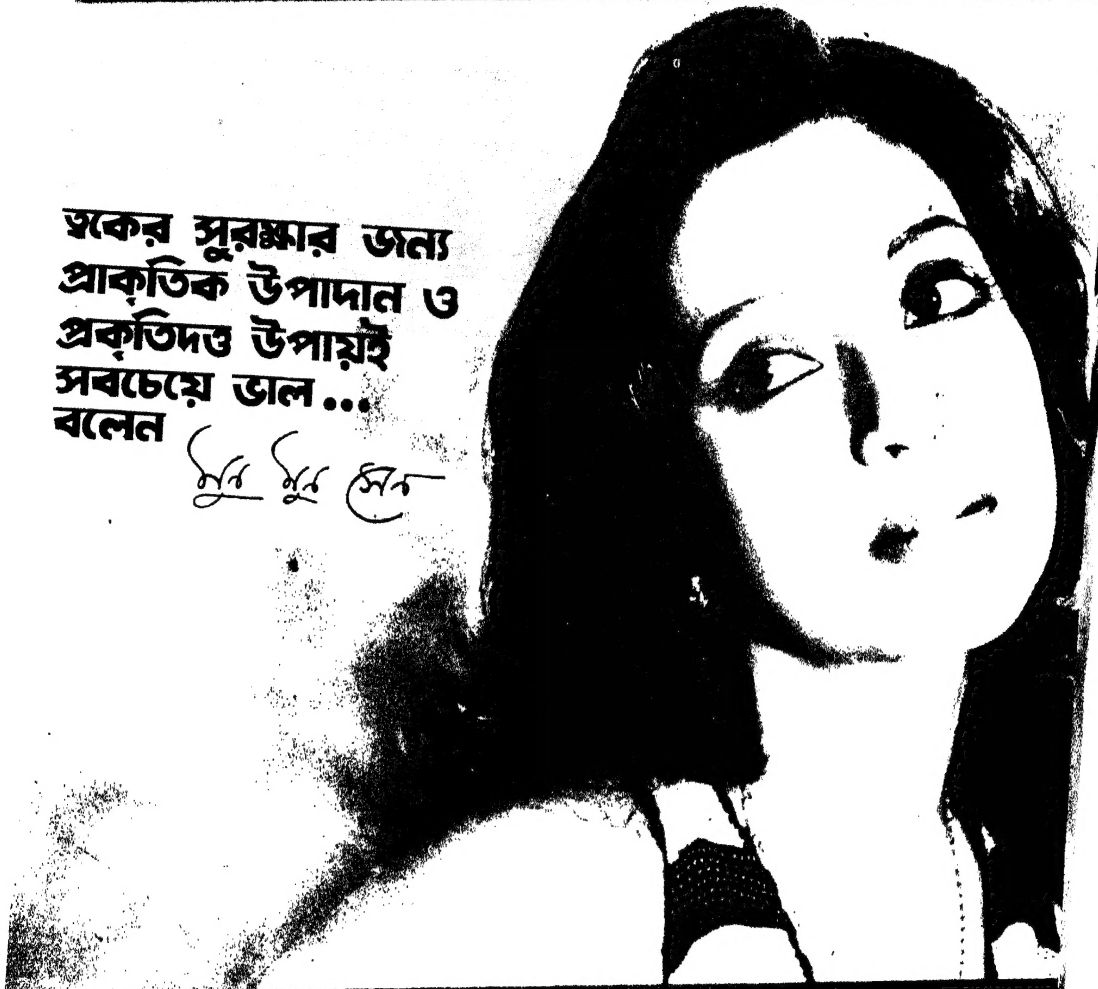 ত্বকের সুরক্ষার জন্য
প্রাকৃতিক উপাদান ও
প্রকৃতিদত্ত উপায়ই
সবচেয়ে ভাল...
বলেন
মুন মুন সেন